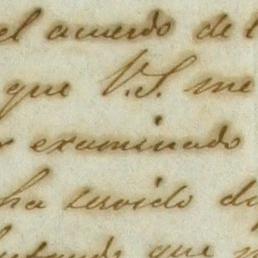 el acuerdo de
que V.S. me
examinado
ha servido
que